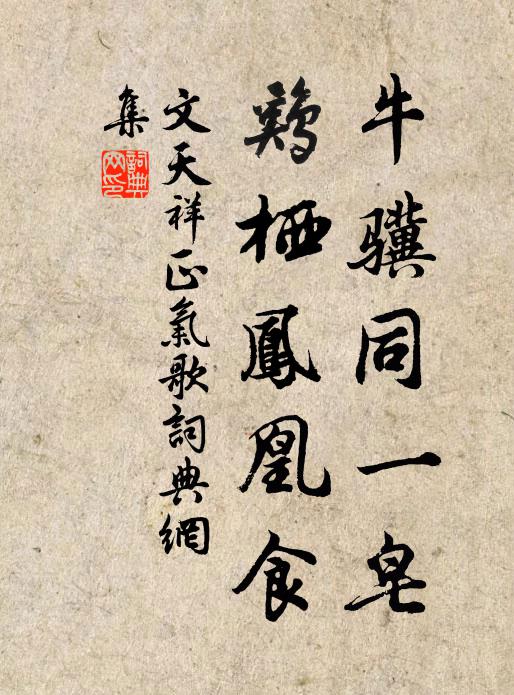 牛骥同一皂
鷄栖鳳凰食
文天祥正氣歌詞典網
集
詞典网印